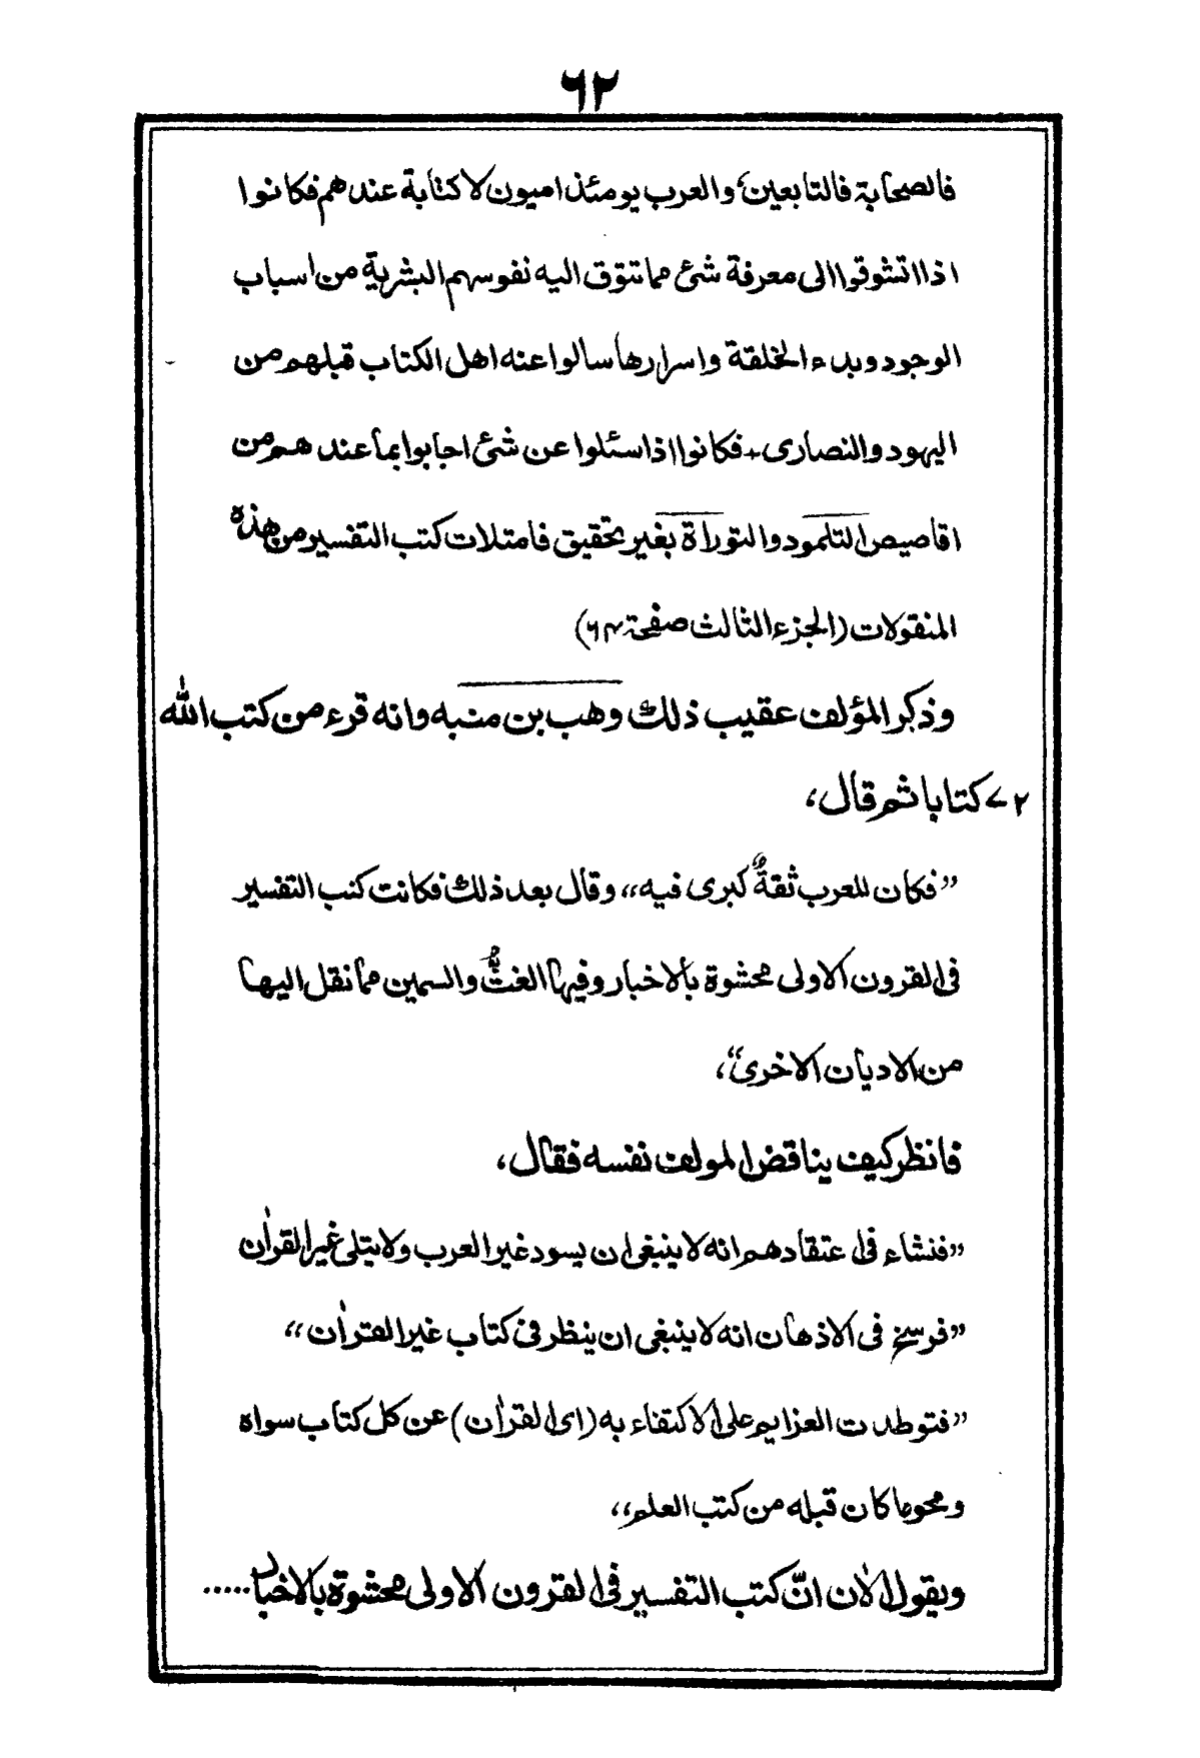 ٦٢
فالصحابة فالتابعين، والعرب يومئذ اميون لا كتابة عندهم فكانوا
اذا اتشوقوا الى معرفة شئ مما تتوق اليه نفوسهم البشرية من اسباب
الوجود وبدء الخلقة واسرارها سالوا عنه اهل الكتاب قبلهم من
اليهود والنصارى، فكانوا اذا سئلوا عن شئ اجابوا بما عندهم من
اقاصيص التلمود والتوراة بغير تحقيق فامتلات كتب التفسير من هذه
المنقولات (الجزء الثالث صفحة ٦٤)
وذكر المؤلف عقيب ذلك وهب بن منبه وانه قرء من كتب الله
٧٢ كتابا ثم قال،
”فكان للعرب ثقةٌ كبرى فيه“ وقال بعد ذلك فكانت كتب التفسير
فى القرون الاولى محشوة بالاخبار وفيها الغثُّ والسمين مما نقل اليها
من الاديان الاخرى“،
فانظر كيف يناقض المولف نفسه فقال،
”فنشاء فى اعتقادهم انه لا ينبغى ان يسود غير العرب ولا يتلى غير القرآن
”فرسخ فى الاذهان انه لا ينبغى ان ينظر فى كتاب غير القرآن“
”فتوطدت العزايم على الاكتفاء به (اى القرآن) عن كل كتاب سواه
ومحو ما كان قبله من كتب العلم“
ويقول الآن انّ كتب التفسير فى القرون الاولى محشوة بالاخبار .....